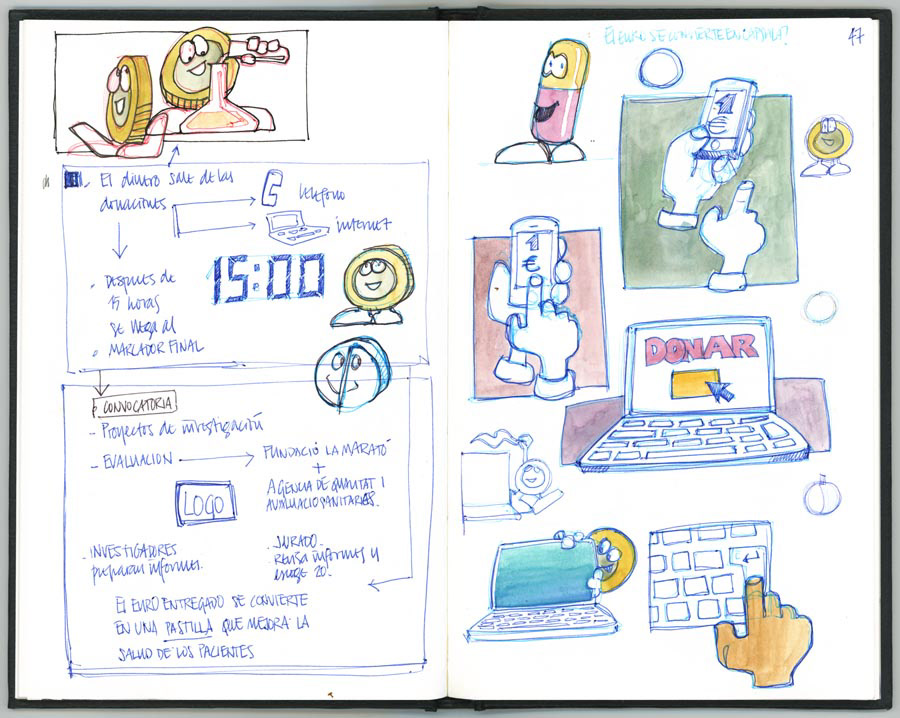 El dinero sale de las
donaciones
teléfono
internet
Después de
15 horas
se llega al
MARCADOR FINAL
15:00
CONVOCATORIA
- Proyectos de investigación
- EVALUACION
FUNDACIÓ LA MARATÓ
+
AGENCIA DE QUALITAT I
AVALUACIO SANITARIES.
LOGO
- INVESTIGADORES
preparan informes.
- JURADO.
Revisa informes y
escoge 20.
El EURO ENTREGADO SE CONVIERTE
EN UNA PASTILLA QUE MEJORA LA
SALUD DE LOS PACIENTES
El EURO SE CONVIERTE EN CAPSULA?
47
1
€
1
€
DONAR